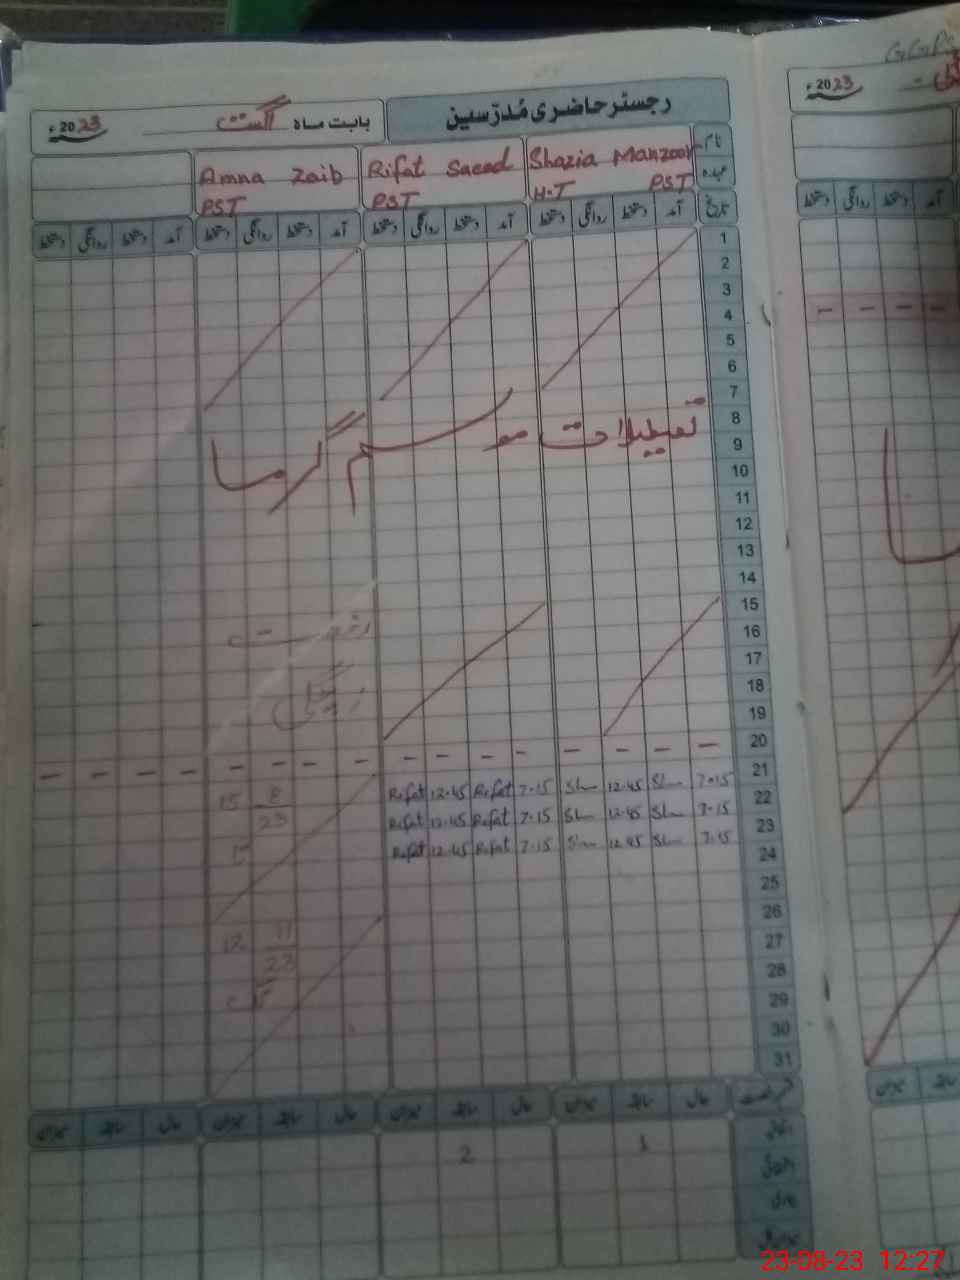 رجسٹر حاضری مُدرّسین
بابت ماہ اگست 2023ء
نام Shazia Manzoor Rifat Saeed Amna Zaib
عہدہ H.T PST PST PST
تاریخ آمد دستخط روانگی دستخط آمد دستخط روانگی دستخط آمد دستخط روانگی دستخط آمد دستخط روانگی دستخط
1
2
3
4
5
6
7
8
تعطیلات موسم گرما
9
10
11
12
13
14
15
16
رخصت
17
18
زچگی
19
20
21
22 7.15 Sh 12.45 Sh 7.15 Rifat 12.45 Rifat
15 8/23
23 7.15 Sh 12.45 Sh 7.15 Rifat 12.45 Rifat
24 7.15 Sh 12.45 Sh 7.15 Rifat 12.45 Rifat
25
26
27
12 11/23
28
29
تک
30
31
حال سابقہ میزان حال سابقہ میزان حال سابقہ میزان حال سابقہ میزان
1 2
2023ء
آمد دستخط روانگی دستخط
23-08-23 12:27